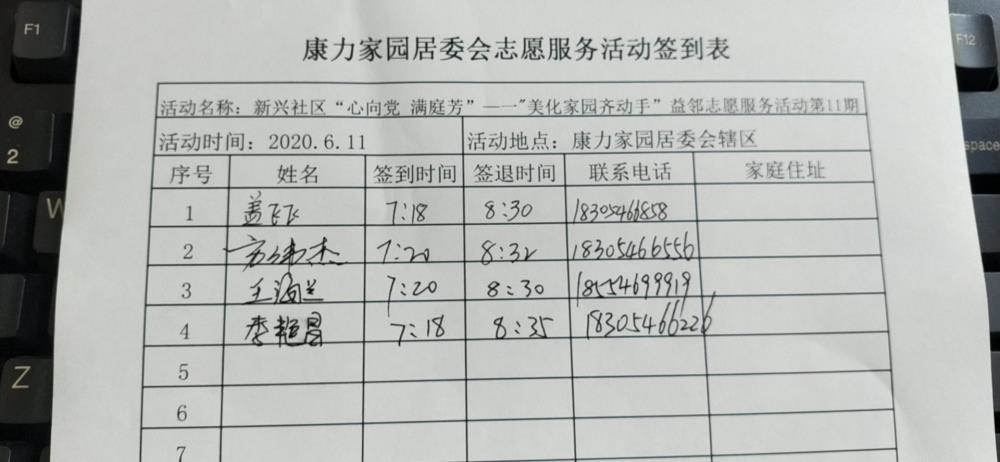 康力家园居委会志愿服务活动签到表
活动名称：新兴社区“心向党 满庭芳”—一"美化家园齐动手”益邻志愿服务活动第11期
活动时间：2020.6.11 活动地点：康力家园居委会辖区
序号 姓名 签到时间 签退时间 联系电话 家庭住址
1 盖飞飞 7:18 8:30 18305466858
2 方伟杰 7:20 8:32 18305466556
3 王海兰 7:20 8:30 18554699919
4 李艳昌 7:18 8:35 18305466226
5
6
7
F1
@
2
W
Z
F12
space